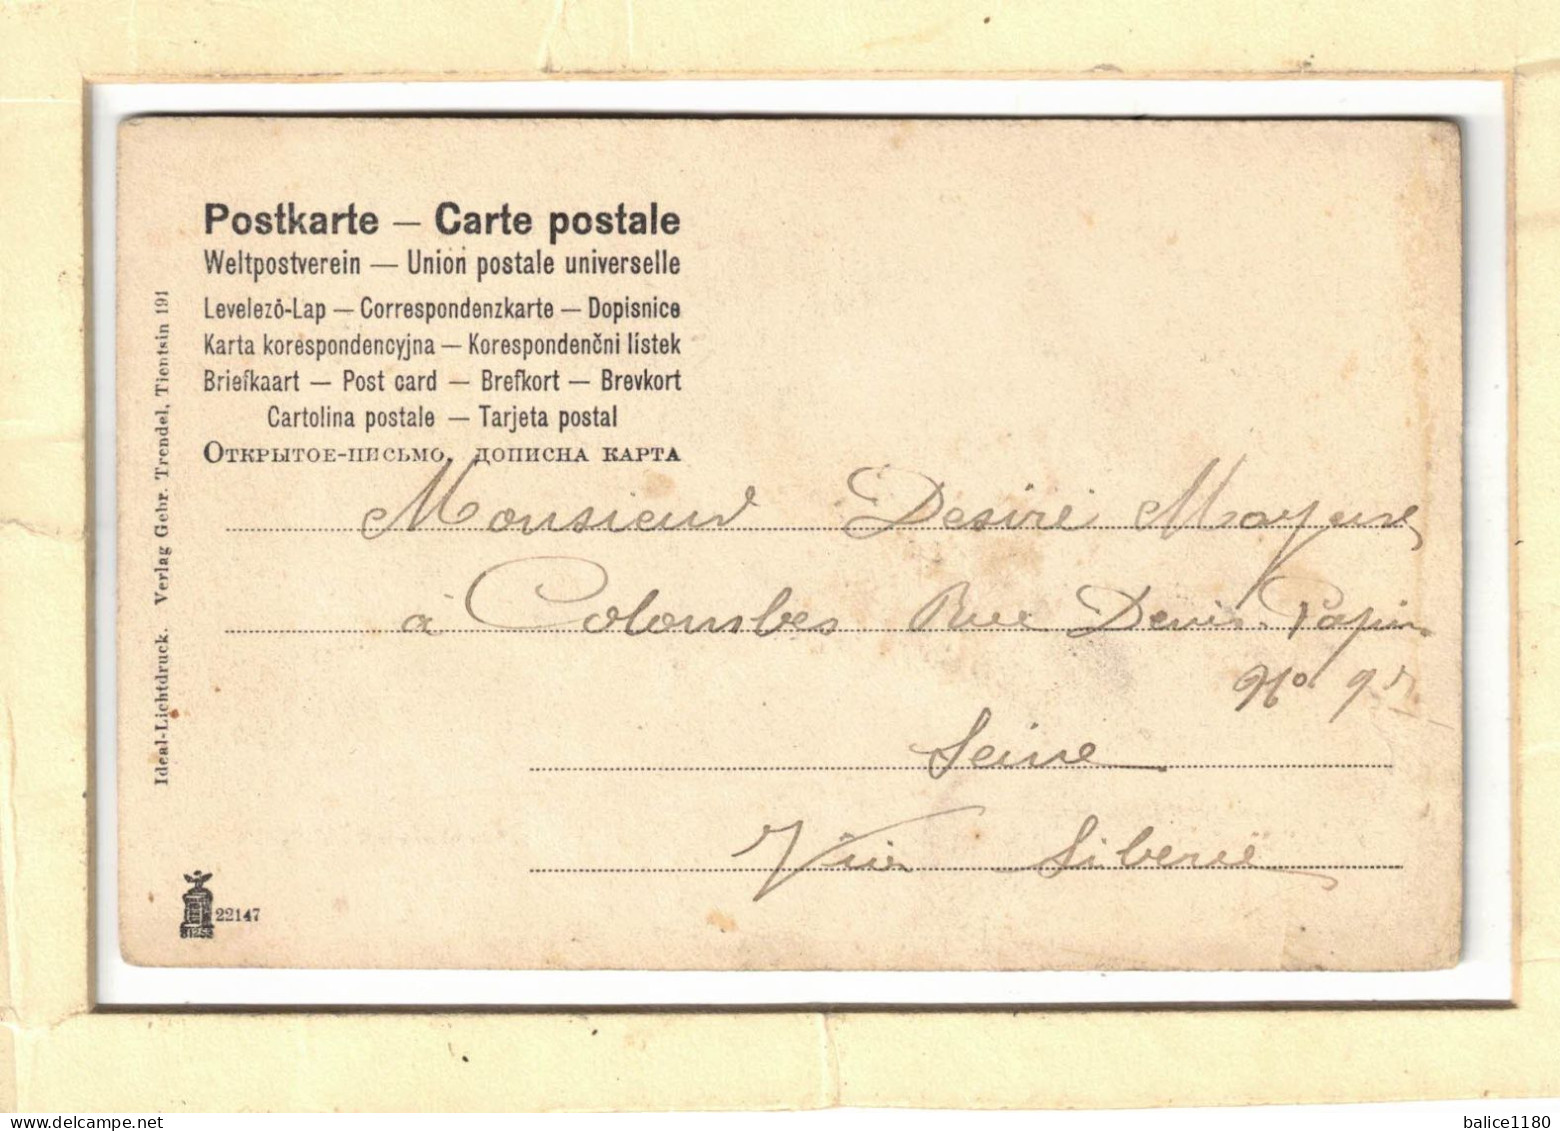 Postkarte — Carte postale
Weltpostverein — Union postale universelle
Levelező-Lap — Correspondenzkarte — Dopisnice
Karta korespondencyjna — Korespondenčni lístek
Briefkaart — Post card — Brefkort — Brevkort
Cartolina postale — Tarjeta postal
Открытое-письмо, дописна карта
Monsieur Desiré
à Colombes Rue Denis Papin
No
Seine
Via Siberie
Ideal-Lichtdruck. Verlag Gebr. Trendel, Tientsin 191
22147
balice1180